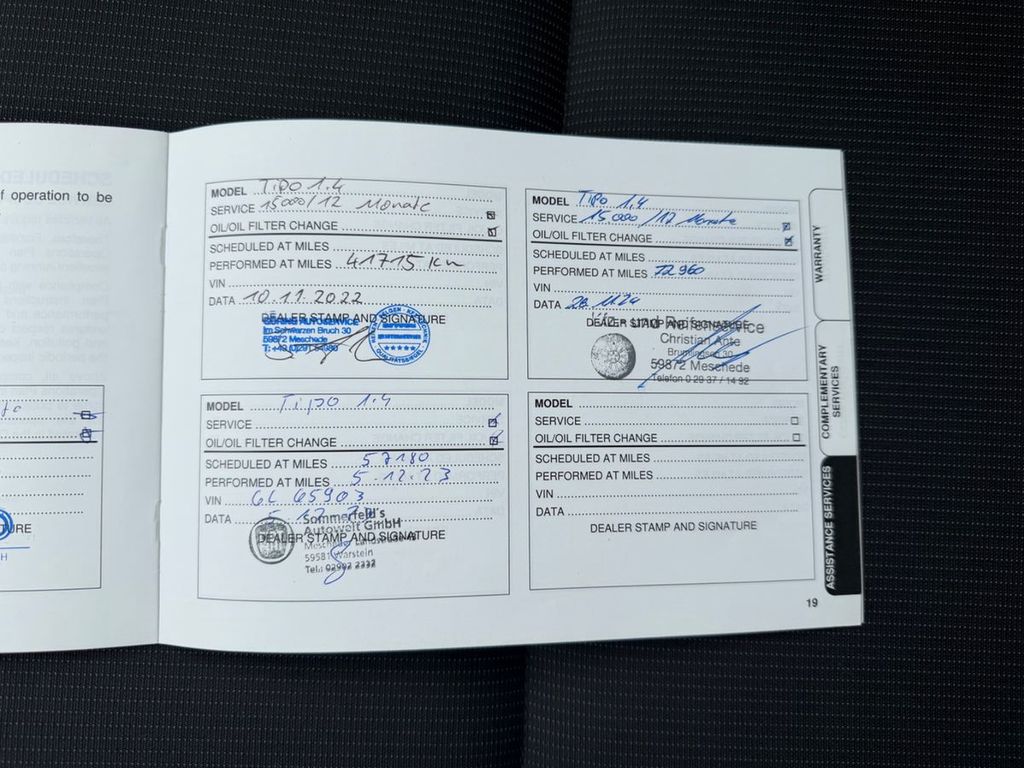 f operation to be
TURE
MODEL Tipo 1.4
SERVICE 15000/12 Monate
OIL/OIL FILTER CHANGE
SCHEDULED AT MILES
PERFORMED AT MILES 41715 Km
VIN
DATA 10.11.2022
DEALER STAMP AND SIGNATURE
AUTOSERVICE
Im Schwarzen Bruch 30
59872 Meschede
QUALITÄTSSIEGEL
MODEL Tipo 1.4
SERVICE
OIL/OIL FILTER CHANGE
SCHEDULED AT MILES 57180
PERFORMED AT MILES 5.12.23
VIN 6L65903
DATA
DEALER STAMP AND SIGNATURE
Sommerfeld's
Autowelt GmbH
Mescheder Landstraße
59581 Warstein
Tel.: 02902 2332
MODEL Tipo 1,4
SERVICE 15000/12 Monate
OIL/OIL FILTER CHANGE
SCHEDULED AT MILES
PERFORMED AT MILES 72960
VIN
DATA 28.11.24
DEALER STAMP AND SIGNATURE
Kfz- und Reifenservice
Christian Ante
59872 Meschede
Telefon 0 29 37 / 14 92
MODEL
SERVICE
OIL/OIL FILTER CHANGE
SCHEDULED AT MILES
PERFORMED AT MILES
VIN
DATA
DEALER STAMP AND SIGNATURE
WARRANTY
COMPLEMENTARY
SERVICES
ASSISTANCE SERVICES
19